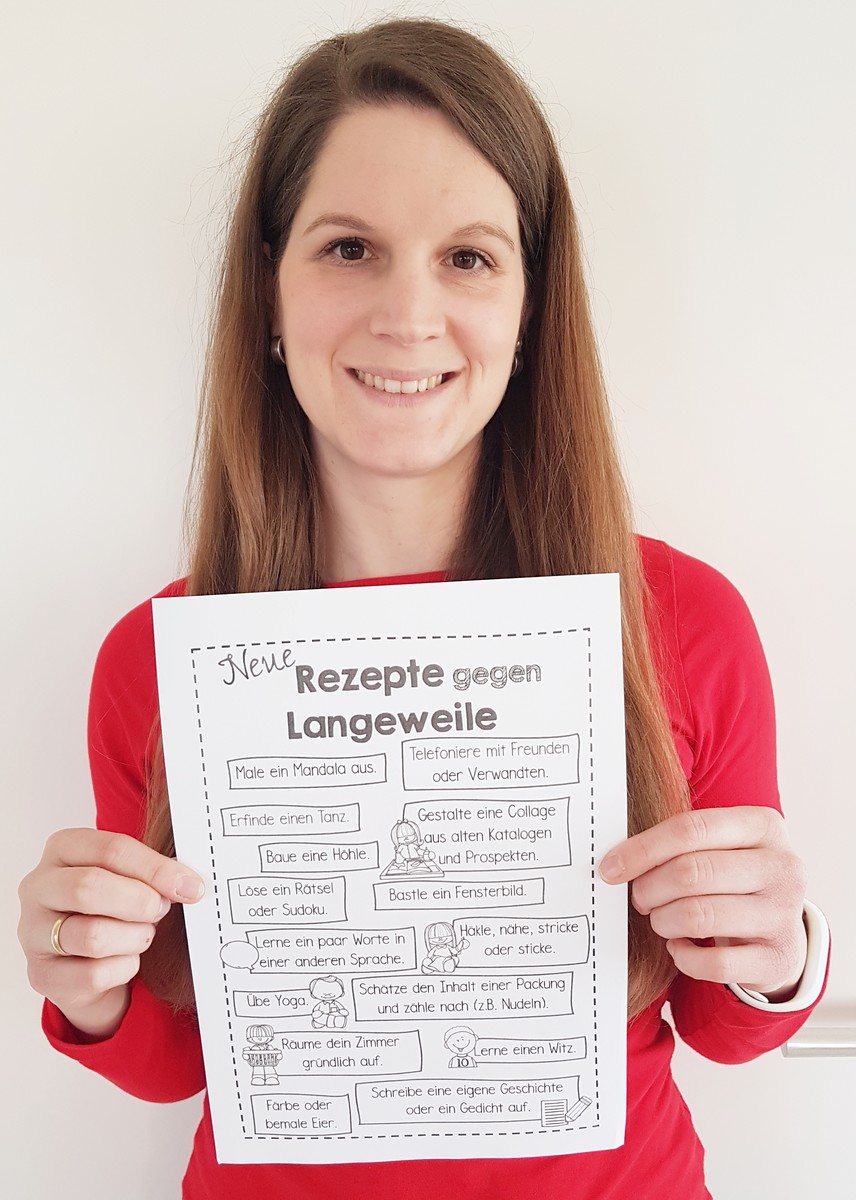 Neue
Rezepte gegen
Langeweile
Male ein Mandala aus.
Telefoniere mit Freunden
oder Verwandten.
Erfinde einen Tanz.
Gestalte eine Collage
aus alten Katalogen
und Prospekten.
Baue eine Höhle.
Löse ein Rätsel
oder Sudoku.
Bastle ein Fensterbild.
Lerne ein paar Worte in
einer anderen Sprache.
Häkle, nähe, stricke
oder sticke.
Übe Yoga.
Schätze den Inhalt einer Packung
und zähle nach (z.B. Nudeln).
Räume dein Zimmer
gründlich auf.
Lerne einen Witz.
10
Färbe oder
bemale Eier.
Schreibe eine eigene Geschichte
oder ein Gedicht auf.